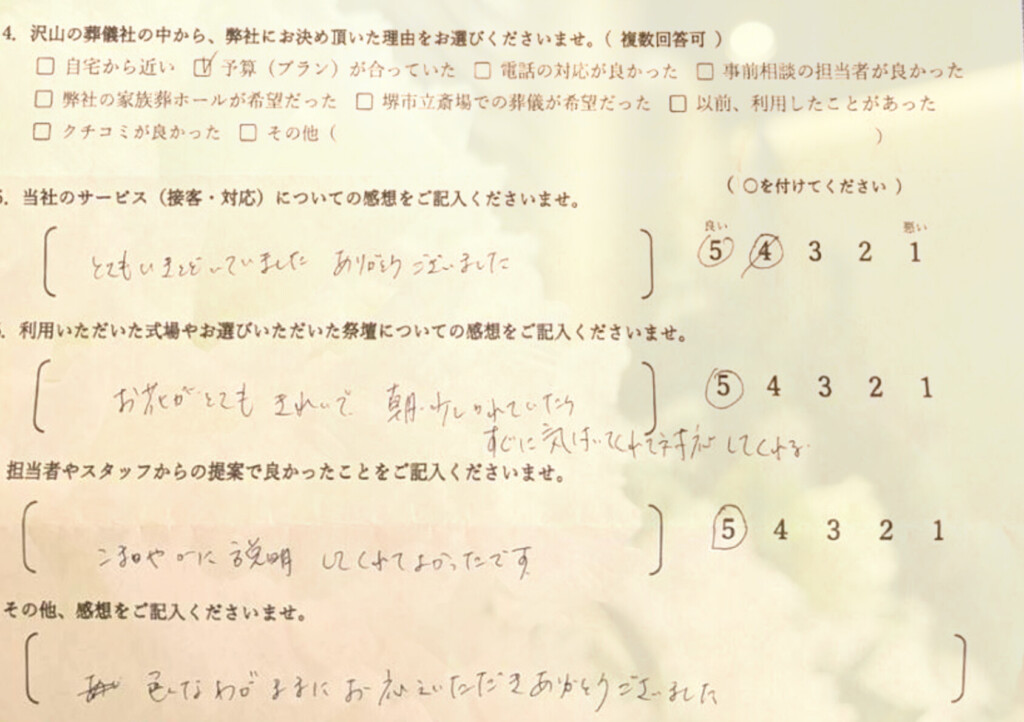 4. 沢山の葬儀社の中から、弊社にお決め頂いた理由をお選びくださいませ。( 複数回答可 )
□ 自宅から近い ☑ 予算（プラン）が合っていた □ 電話の対応が良かった □ 事前相談の担当者が良かった
□ 弊社の家族葬ホールが希望だった □ 堺市立斎場での葬儀が希望だった □ 以前、利用したことがあった
□ クチコミが良かった □ その他（ ）
5. 当社のサービス（接客・対応）についての感想をご記入くださいませ。
（ ○を付けてください ）
良い 悪い
5 4 3 2 1
とてもいきとどいていました ありがとうございました
. 利用いただいた式場やお選びいただいた祭壇についての感想をご記入くださいませ。
5 4 3 2 1
お花がとてもきれいで 朝、少しかれていたら
すぐに気づいてくれて対応してくれる
担当者やスタッフからの提案で良かったことをご記入くださいませ。
5 4 3 2 1
こまやかに説明してくれてよかったです
その他、感想をご記入くださいませ。
色々なわがままにお応えいただきありがとうございました